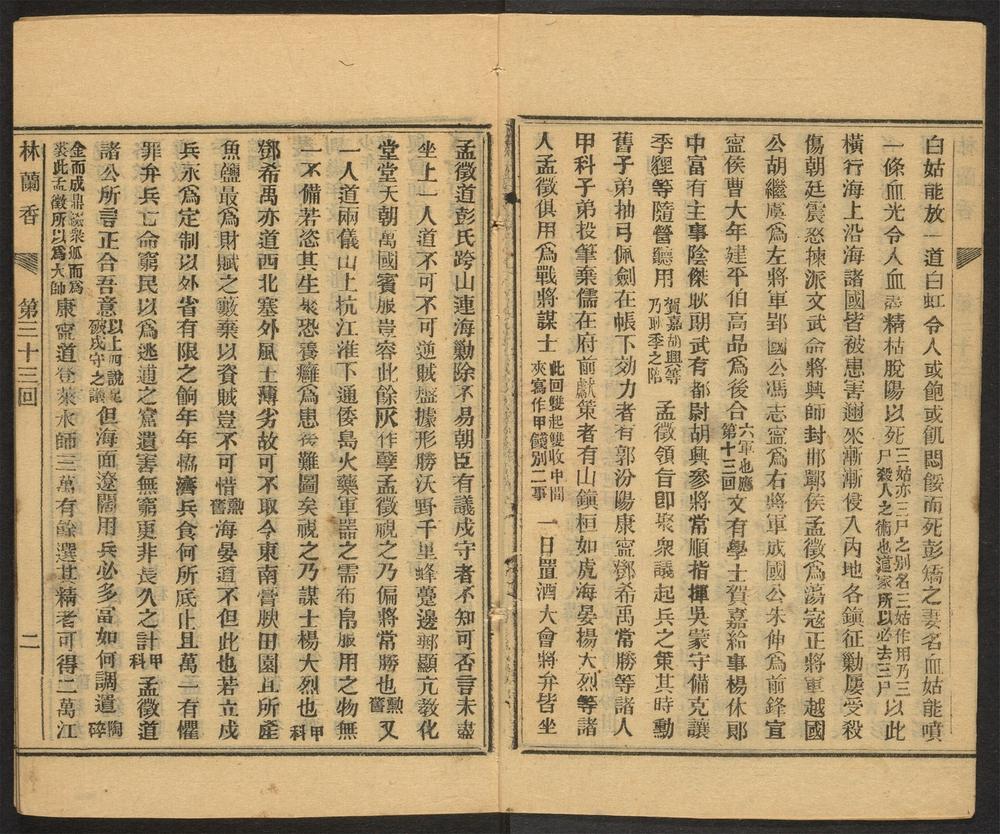 白姑能放一道白虹令人或飽或飢悶餒而死彭矯之妻名血姑能噴
一條血光令人血盡精枯脫陽以死三姑亦三尸之別名三姑作用乃三尸殺人之術也道家所以必去三尸以此
橫行海上沿海諸國皆被患害邇來漸漸侵入內地各鎮征勦屢受殺
傷朝廷震怒揀派文武命將興師封邯鄲侯孟徵爲蕩寇正將軍越國
公胡繼虞爲左將軍郢國公馮志寧爲右將軍成國公朱伸爲前鋒宣
寧侯曹大年建平伯高品爲後合六軍也應第十三回文有學士賀嘉給事楊休郎
中富有主事陰傑耿期武有都尉胡興參將常順指揮吳蒙守備克讓
季貍等隨營聽用賀嘉胡興等乃耿季之陪孟徵領旨即聚衆議起兵之策其時勳
舊子弟抽弓佩劍在帳下効力者有郭汾陽康寧鄧希禹常勝等諸人
甲科子弟投筆棄儒在府前獻策者有山鎮桓如虎海晏楊大烈等諸
人孟徵俱用爲戰將謀士此回雙起雙收中間夾寫作甲餞別二事一日置酒大會將弁皆坐
孟徵道彭氏跨山連海勦除不易朝臣有議戍守者不知可否言未盡
坐上一人道不可不可逆賊盤據形勝沃野千里蜂躉邊鄙顯亢教化
堂堂天朝萬國賓服豈容此餘灰作孽孟徵視之乃偏將常勝也勳舊又
一人道兩儀山上抗江淮下通倭島火藥軍器之需布帛服用之物無
一不備若恣其生聚恐養癰爲患後難圖矣視之乃謀士楊大烈也甲科
鄧希禹亦道西北塞外風土薄劣故可不取今東南膏腴田園且所產
魚鹽最爲財賦之藪棄以資賊豈不可惜勳舊海晏道不但此也若立戍
兵永爲定制以外省有限之餉年年協濟兵食何所底止且萬一有懼
罪弁兵亡命窮民以爲逃逋之窟遺害無窮更非長久之計甲科孟徵道
諸公所言正合吾意以上四說足破戍守之議但海面遼闊用兵必多當如何調遣陶碎
金而成鼎綴衆狐而爲裘此孟徵所以爲大師康寧道登萊水師三萬有餘選其精者可得二萬江
林蘭香
第三十三回
二